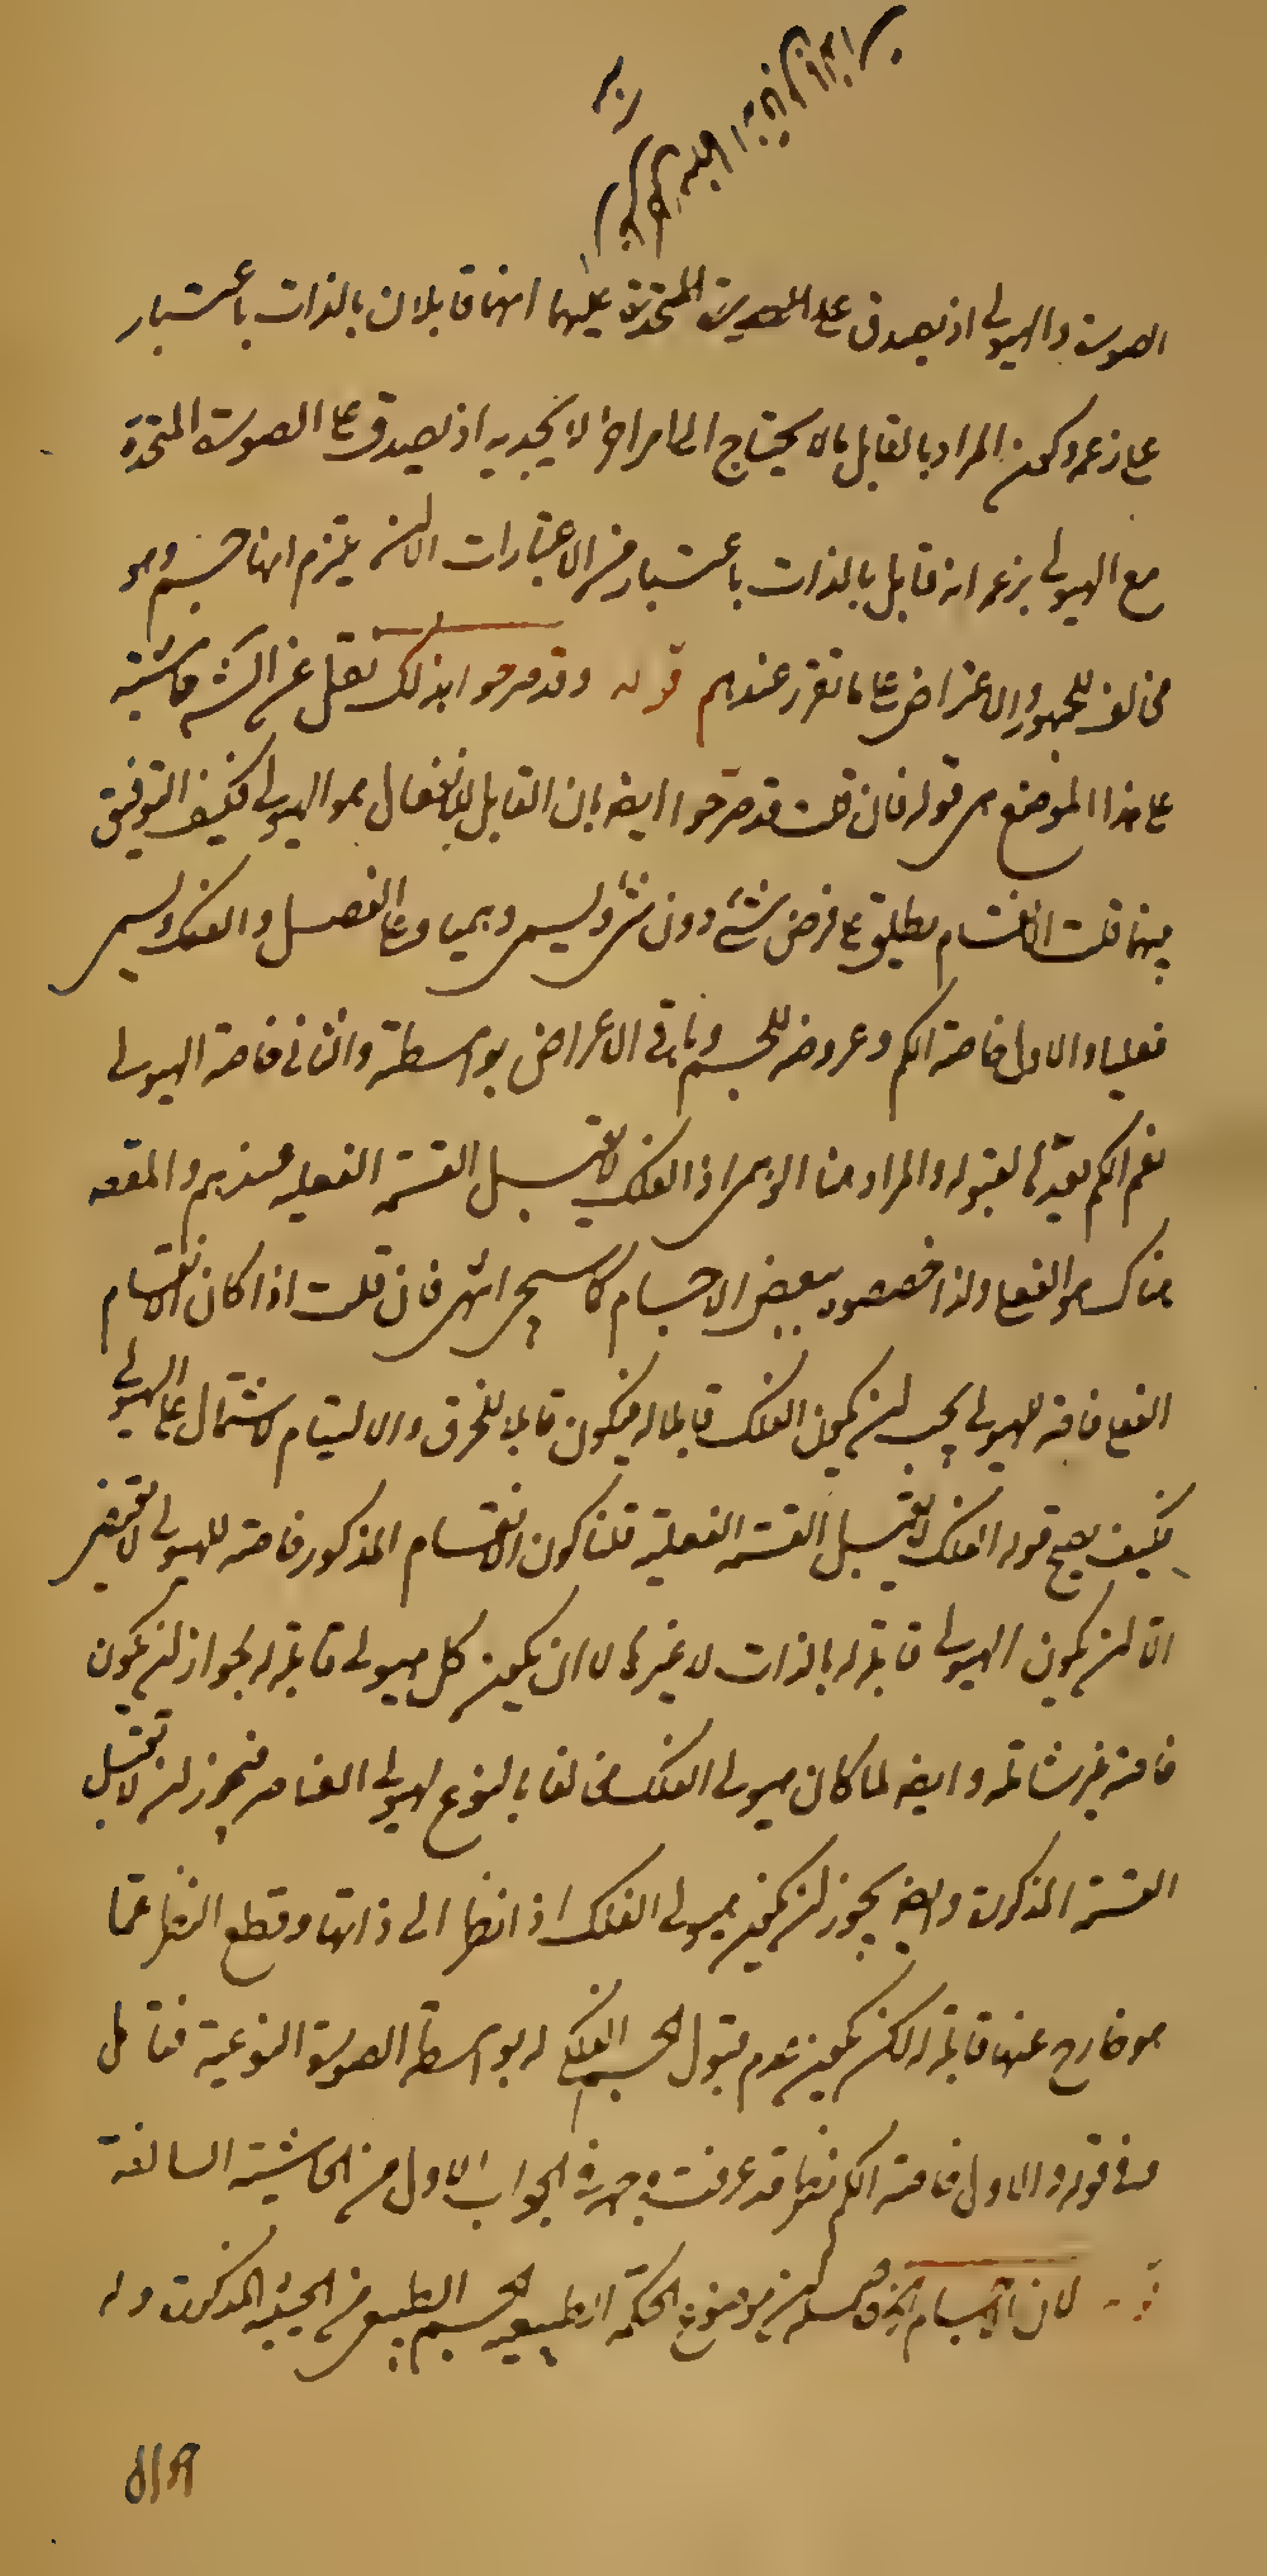 الصورة والهيولى اذ يصدق على الصورة المتحدة عليهما انهما قابلان بالذات باعتبار
على زعمه وكون المراد بالقابل ما لا يحتاج الى امر اخر لا يجديه اذ يصدق على الصورة المتحدة
مع الهيولى بزعمه انه قابل بالذات باعتبار من الاعتبارات الا ان يلتزم انها جسم وهو
مخالف للجمهور والاعتراض على ما تقرر عندهم قوله وقد صرحوا بذلك نقل عن الش حاشية
على هذا الموضع هى قوله فان قلت قد صرحوا ايضا بان القابل للانفصال هو الهيولى فكيف التوفيق
بينهما قلت الانقسام يطلق على فرض شئ دون شئ ويسمى وهميا وعلى الفصل والفك ويسمى
فعليا والاول خاصة الكم وعروضه للجسم وباقى الاعراض بواسطته والثانى خاصة الهيولى
نعم الكم يعدها لقبوله والمراد هنا الوهمى اذ الفلك لا يقبل القسمة الفعلية عندهم والمقصود
هناك هو الفعلى ولذا خصصوه ببعض الاجسام كما سيجئ انتهى فان قلت اذا كان الانقسام
الفعلى خاصة للهيولى يجب ان يكون الفلك قابلا له فيكون قابلا للخرق والالتيام لاشتماله على الهيولى
فكيف يصح قوله الفلك لا يقبل القسمة الفعلية قلنا كون الانقسام المذكور خاصة للهيولى لا يقتضى
الا ان يكون الهيولى قابلة له بالذات لا غيرها لا ان يكون كل هيولى قابلة له لجواز ان يكون
خاصة غير شاملة وايضا لما كان هيولى الفلك مخالفا بالنوع لهيولى العناصر فيجوز ان لا تقبل
القسمة المذكورة وايضا يجوز ان يكون هيولى الفلك اذا نظر الى ذاتها وقطع النظر عما
هو خارج عنها قابلة له لكن يكون عدم قبول الجسم الفلكى له بواسطة الصورة النوعية فتأمل
وفى قوله والاول خاصة الكم نظر قد عرفت وجهه فى الجواب الاول من الحاشية السالفة
قوله لان الاجسام موضوع الحكمة الطبيعية الجسم الطبيعى من الحيثية المذكورة وله